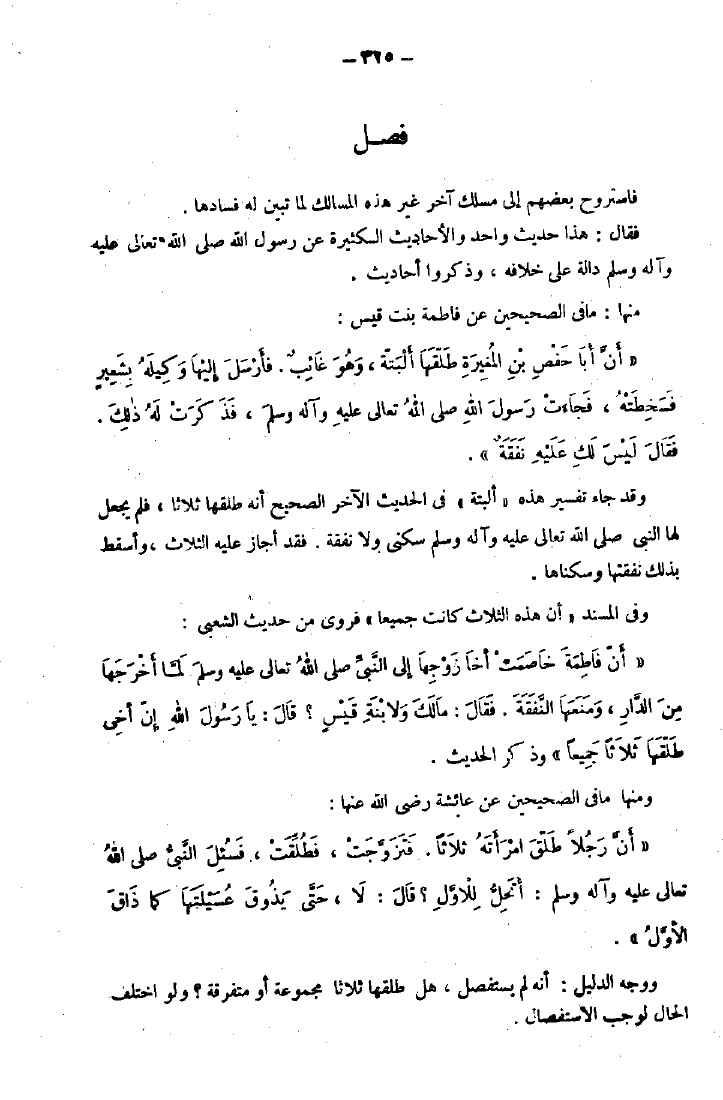 — ٣٢٥ —
فصل
فاستروح بعضهم إلى مسلك آخر غير هذه المسالك لما تبين له فسادها .
فقال : هذا حديث واحد والأحاديث الكثيرة عن رسول الله صلى الله تعالى عليه
وآله وسلم دالة على خلافه ، وذكروا أحاديث .
منها : مافى الصحيحين عن فاطمة بنت قيس :
« أَنَّ أَبَا حَفْصِ بْنِ المُغِيرَةِ طَلَّقَهَا أَلْبَتَّةَ ، وَهُوَ غَائِبٌ . فَأَرْسَلَ إِلَيْهَا وَكِيلَهُ بِشَعِيرٍ
فَسَخِطَتْهُ ، فَجَاءَتْ رَسُولَ اللهِ صلى اللهُ تعالى عليهِ وآله وسلمَ ، فَذَكَرَتْ لَهُ ذٰلِكَ .
فَقَالَ لَيْسَ لَكِ عَلَيْهِ نَفَقَةٌ » .
وقد جاء تفسير هذه « ألبتة » فى الحديث الآخر الصحيح أنه طلقها ثلاثا ، فلم يجعل
لها النبى صلى الله تعالى عليه وآله وسلم سكنى ولا نفقة . فقد أجاز عليه الثلاث ، وأسقط
بذلك نفقتها وسكناها .
وفى المسند « أن هذه الثلاث كانت جميعا » فروى من حديث الشعبى :
« أَنّ فَاطِمَةَ خَاصَمَتْ أخَا زَوْجِهَا إلى النَّبِيِّ صلى اللهُ تعالى عليهِ وسلمَ لَمَّا أَخْرَجَهَا
مِنَ الدَّارِ ، وَمَنَعَهَا النَّفَقَةَ . فَقَالَ : مَالَكَ وَلابْنَةِ قَيْسٍ ؟ قالَ : يا رَسُولَ اللهِ إنّ أخِى
طَلَّقَهَا ثَلاَثًا جَمِيعاً » وذكر الحديث .
ومنها مافى الصحيحين عن عائشة رضى الله عنها :
« أَنَّ رَجُلاً طَلّقَ امْرَأَتَهُ ثلاَثاً . فَتَزَوَّجَتْ ، فَطُلِّقَتْ ، فَسُئِلَ النَّبىُّ صلى اللهُ
تعالى عليه وآله وسلم : أَتَحِلُّ لِلْأوَّلِ ؟ قالَ : لَا ، حَتَّى يَذُوقَ عُسَيْلَتَهَا كما ذَاقَ
الأوَّلُ » .
ووجه الدليل : أنه لم يستفصل ، هل طلقها ثلاثا مجموعة أو متفرقة ؟ ولو اختلف
الحال لوجب الاستفصال .